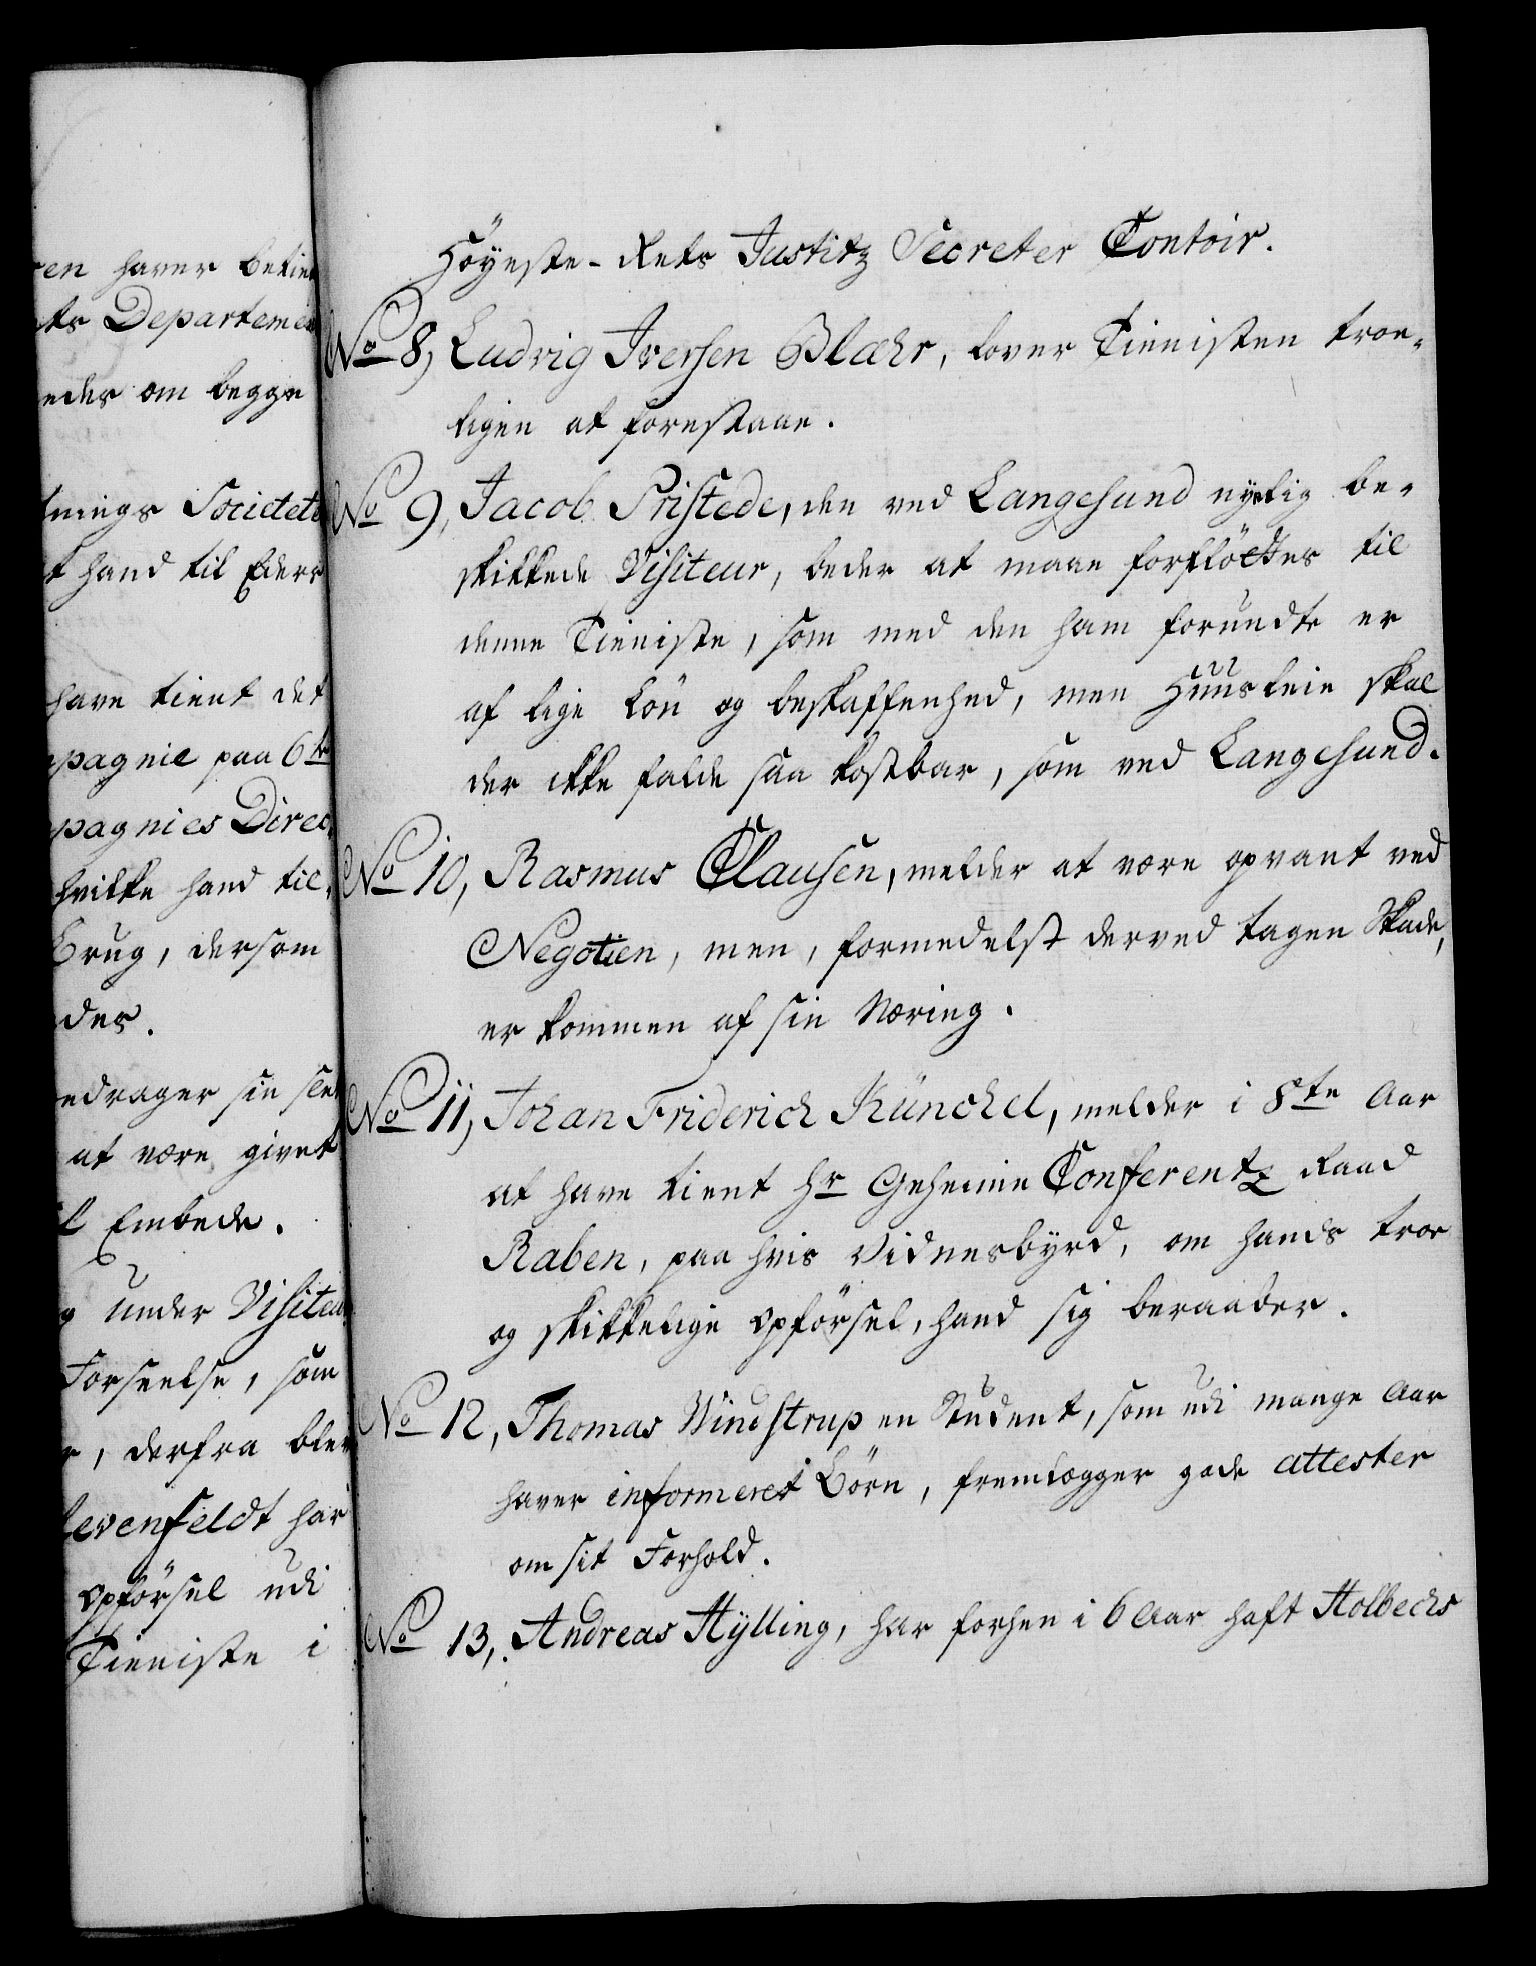 en haver betien
ts Departemen
edes om begge
tnings Societet
t hand til Eders
have tient det
pagnie paa 6te
pagnies Direc-
hvilke hand til-
Brug, dersom
des.
edrager sin slet
at være givet
l Embede.
g under Visiteu
Forseelse, som
r, derfra blev
levenfeldt har
Opförsel udi
Tieniste i
Höyeste-Rets Justitz Secreter Contoir.
No 8, Ludvig Iversen Blæhr, lover Tienisten troe-
ligen at forestaae.
No 9, Jacob Pristede, den ved Langesund nÿelig be-
skikkede Visiteur, beder at maae forflöttes til
denne Tieniste, som med den ham forundte er
af lige Lön og beskaffenhed, men Huusleie skal
der ikke falde saa kostbar, som ved Langesund.
No 10, Rasmus Clausen, melder at være opvant ved
Negotien, men, formedelst derved tagen Skade,
er kommen af sin Næring.
No 11, Johan Friderich Künckel, melder i 8te Aar
at have tient Hr Geheime Conferentz Raad
Raben, paa hvis Vidnesbÿrd, om hands troe
og skikkelige Opförsel, hand sig beraaber.
No 12, Thomas Windstrup en Student, som udi mange Aar
haver informeret Börn, fremlægger gode attester
om sit Forhold.
No 13, Andreas Hÿlling, har forhen i 6 Aar haft Holbechs